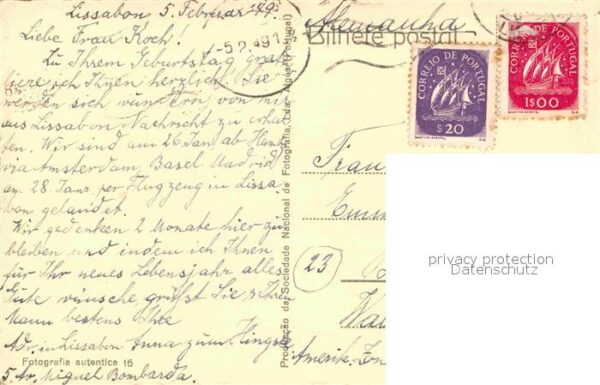 Lissabon 5. Februar 49.
Liebe Frau Koch!
Zu Ihrem Geburtstag gratu-
liere ich Ihnen herzlich! Sie
werden sich wundern, von mir
aus Lissabon Nachricht zu erhal-
ten. Wir sind am 26 Jan. ab Hamb.
via Amsterdam, Basel Madrid
am 28. Jans. per Flugzeug in Lissa-
bon gelandet.
Wir gedenken 2 Monate hier zu
bleiben und indem ich Ihnen
für Ihr neues Lebensjahr alles
Gute wünsche, grüßt Sie & Ihren
Mann bestens Ihre
Anna zum Hingst
Adr. in Lissabon
5. Av. Miguel Bombarda.
Fotografia autentica 16
Produção da Sociedade Nacional de Fotografia, Lda. Algés (Portugal)
-5.2.49
Alemanha
Bilhete postal
CORREIO DE PORTUGAL
$20
CORREIO DE PORTUGAL
1$00
Frau
Emm
23
Wa
Amerik. Zon
privacy protection
Datenschutz